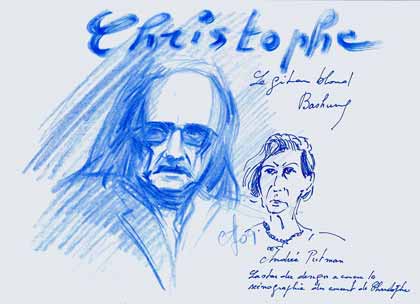 Christophe
Le gitan blond
Bashung
Andrée Putman
La star du design a conçu la
scénographie du concert de Christophe